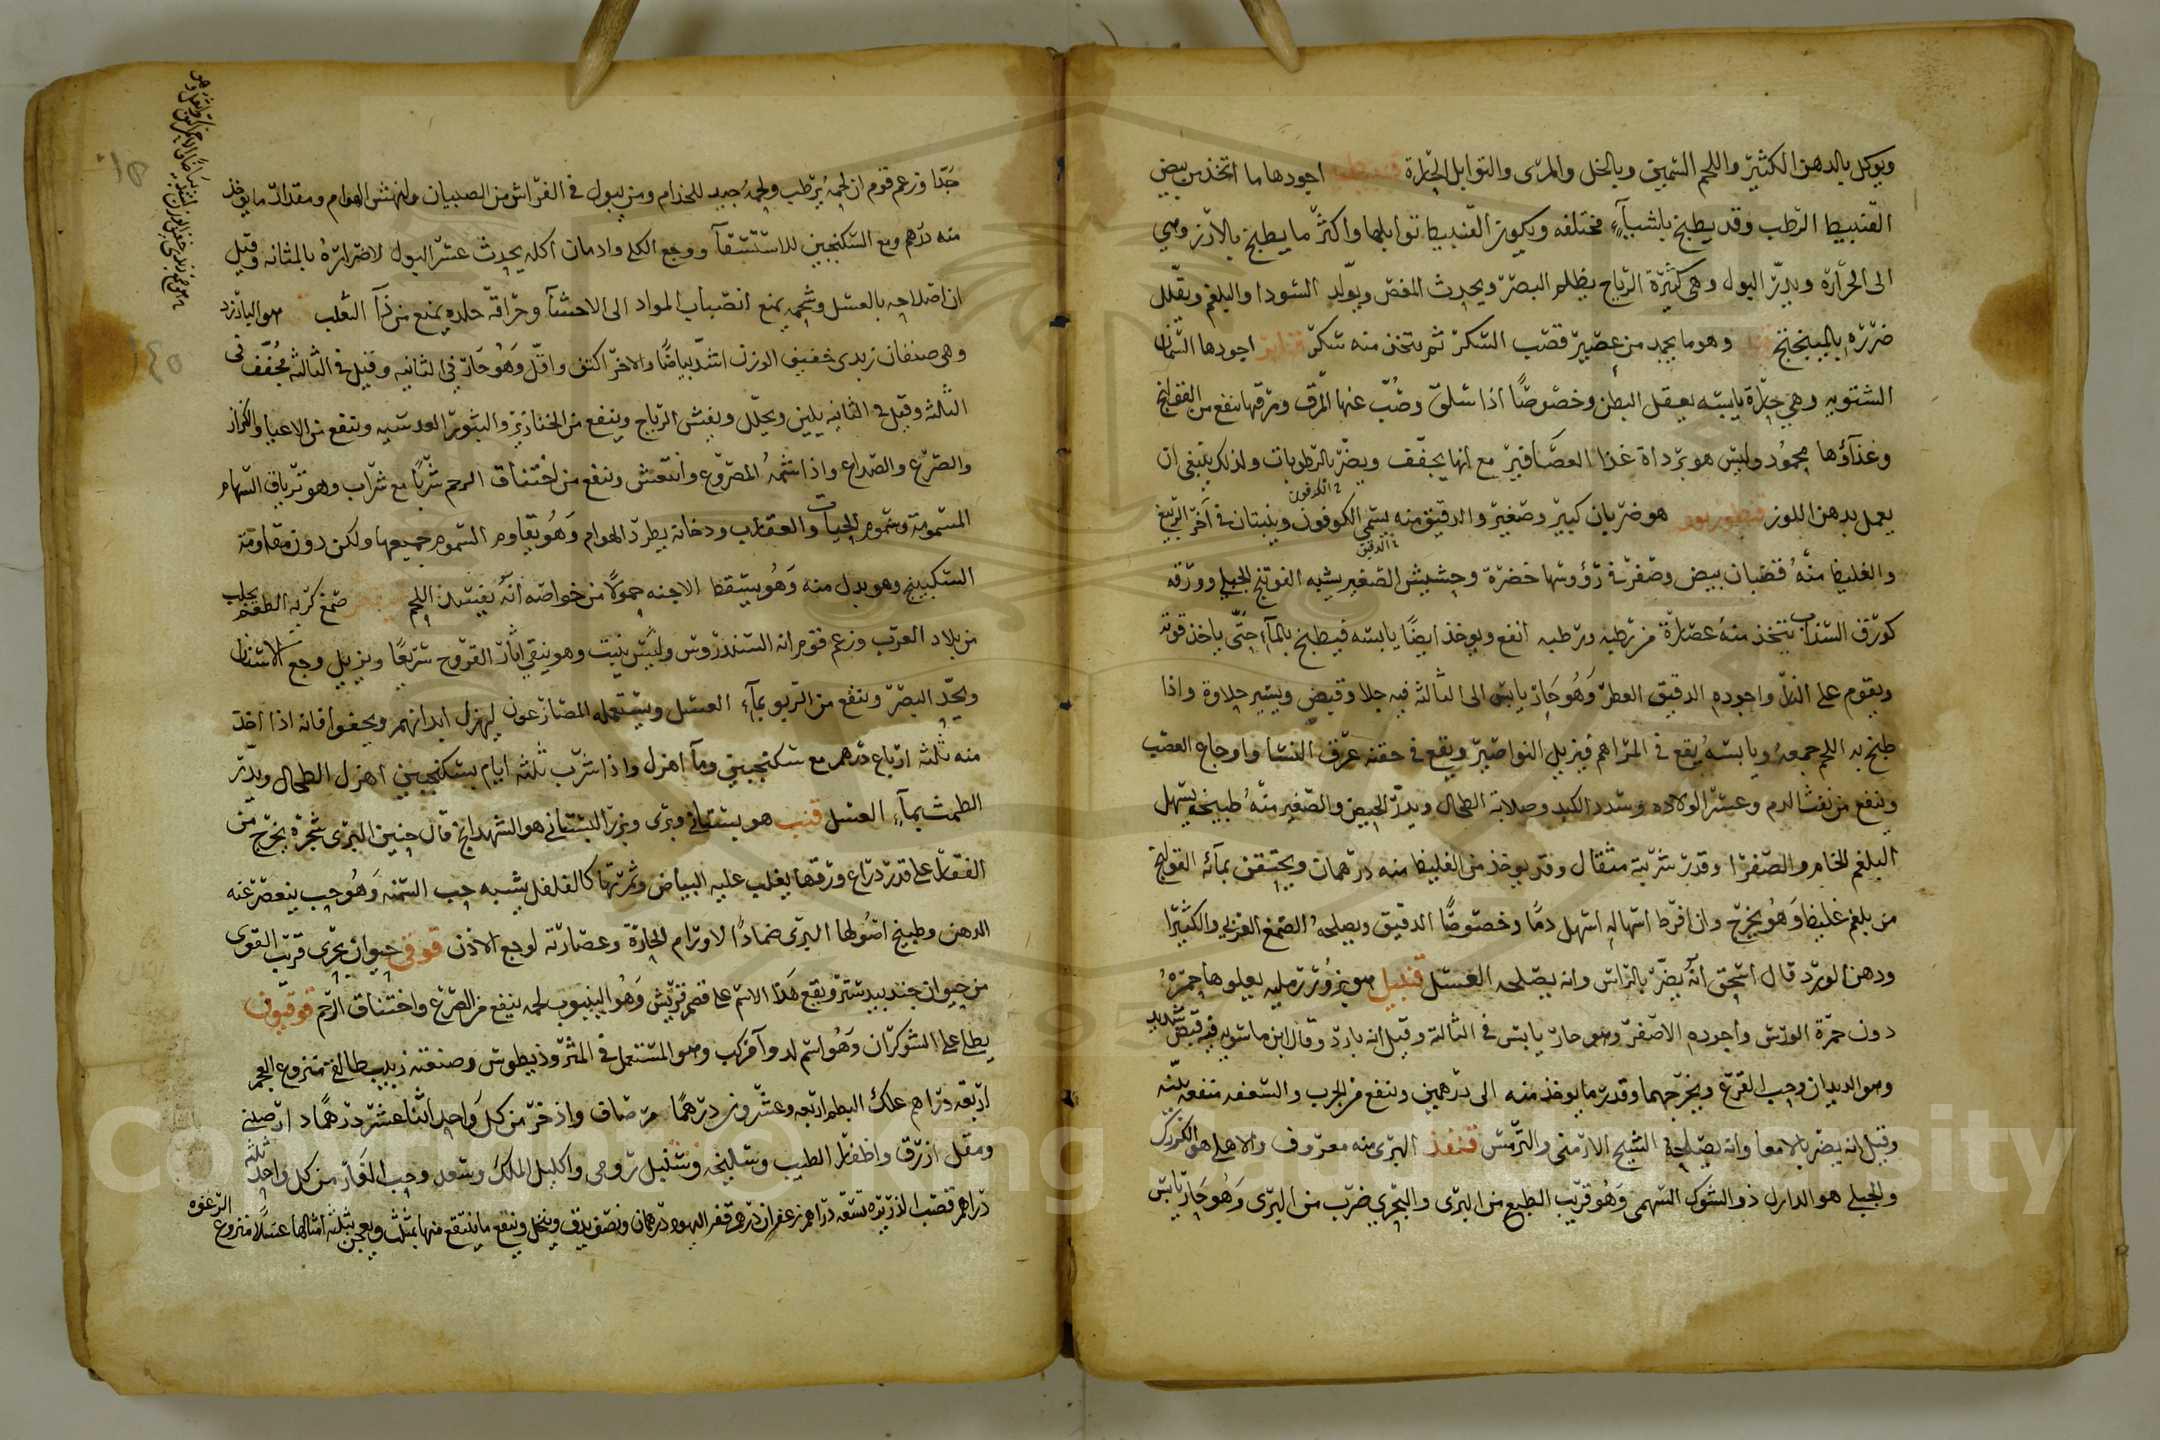 ويوكل بالدهن الكثير واللحم السمين وبالخل والمرى والتوابل الحارة قنبيطيه اجودها ما اتخذ من بيض
القنبيط الرطب وقد يطبخ باشياء مختلفه ويكون القنبيط توابلها واكثر ما يطبخ بالارز وهي
الى الحرارة ويدر البول وهي كثيرة الرياح يظلم البصر ويحدث المغص ويولد السودا والبلغم ويقلل
ضرره بالميبختج قند وهو ما يجمد من عصير قصب السكر ثم يتخذ منه سكر قنابر اجودها السمان
الشتويه وهي حارة يابسه يعقل البطن وخصوصا اذا سلق وصب عنها المرق ومرقها ينفع من القولنج
وغذاؤها محمود وليس هو برداة غذا العصافير مع انها يجفف ويضر بالرطوبات ولذلك ينبغي ان
يعمل بدهن اللوز قنطوريون هو ضربان كبير وصغير والدقيق منه يسمى الكوفون وينبتان في آخر الربيع
والغليظ منه قضبان بيض وصفر في رؤوسها خضرة وحشيش الصغير يشبه الفوتنج الجبلي وورقه
كورق السذاب يتخذ منه عصارة من رطبه ورطبه انفع ويوخذ ايضا يابسه فيطبخ بالماء حتى ياخذ قوته
ويقوم على النار واجوده الدقيق العطر وهو حار يابس الى الثالثه فيه جلا وقبض ويسير حلاوة واذا
طبخ به اللحم جمعه ويابسه يقع في المراهم فيزيل النواصير ويقع في حقنه عرق النسا واوجاع العصب
وينفع من نفث الدم وعسر الولاده وسدد الكبد وصلابة الطحال ويدر الحيض والصغير منه طبيخه يسهل
البلغم الخام والصفرا وقدر شربته مثقال وقد يوخذ من الغليظ منه درهمان ويحتقن بمائه القولنج
من بلغم غليظ وهو يخرج وان افرط اسهاله اسهل دما وخصوصا الدقيق ويصلحه الصمغ العربي والكثيرا
ودهن الورد قال اسحق انه يضر بالراس وانه يصلحه العسل قنبيل هو بزور رمليه يعلوها حمره
دون حمرة الورس واجوده الاصفر وهو حار يابس في الثالثة وقيل انه بارد وقال ابن ماسويه فيه قبض شديد
وهو الديدان وحب القرع ويخرجهما وقدر ما يوخذ منه الى درهمين وينفع من الجرب والسعفه منفعه بينه
وقيل انه يضر بالامعا وانه يصلحه الشيح الارمني والترمس قنفذ البرى منه معروف والاهلي هو
والجبلي هو الدارل ذو الشوك السهمى وهو قريب الطبع من البرى والبحري ضرب من البرى وهو حار يابس
جدا وزعم قوم ان لحمه يرطب ولحمه جيد للجذام ومن يبول في الفراش من الصبيان ولنهش الهوام ومقدار ما يوخذ
منه درهم ومع السكنجبين للاستسقا ووجع الكلى وادمان اكله يحدث عسر البول لاضراره بالمثانه وقيل
ان اصلاحه بالعسل وشحمه يمنع انصباب المواد الى الاحشا وحراقة جلده يمنع من دآ الثعلب هو البارزد
وهي صنفان زبدى خفيف الوزن اشد بياضا والاخر اكثف واقل وهو حار في الثانيه وقيل في الثالثه مجفف في
الثالثة وقيل في الثانيه يلين ويحلل ويفش الرياح وينفع من الخنازير والبثور العدسيه وينفع من الاعيا والكزاز
والصرع والصداع واذا شمه المصروع وانتعش وينفع من اختناق الرحم شربا مع شراب وهو ترياق السهام
المسمومة وسموم الحيات والعقارب ودخانه يطرد الهوام وهو يقاوم السموم جميعها ولكن دون مقاومة
السكبينج وهو بدل منه وهو يسقط الاجنه حمولا من خواصه انه يفسد اللحم صمغ كريه الطعم يجلب
من بلاد العرب وزعم قوم انه السندروس وليس يثبت وهو ينقي آثار القروح سريعا ويزيل وجع الاسنان
ويحد البصر وينفع من الربو بماء العسل ويستعمله المصارعون ليهزل ابدانهم ويخفوا فانه اذا اخذ
منه ثلثة ارباع درهم مع سكنجبين وما اهزل واذا شرب ثلثة ايام بسكنجبين اهزل الطحال ويدر
الطمث بماء العسل قنب هو بستاني وبرى وبزر البستاني هو الشهدانج قال حنين البرى شجرة يخرج من
القفار على قدر ذراع ورقها يغلب عليه البياض وثمرتها كالفلفل يشبه حب السمنه وهو حب ينعصر عنه
الدهن وطبيخ اصولها البرى ضمادا لاورام الحارة وعصارته لوجع الاذن قوقى حيوان بحري قريب القوى
من حيوان جندبيدستر ويقع هذا الاسم على قضم قريش وهو الينبوت لحمه ينفع من الصرع واختناق الرحم قوقيون
يطلع على الشوكران وهو اسم لدوآ مركب وهو المستعمل في المثروذيطوس وصنعته زبيب طايفي منزوع العجم
اربعة دراهم علك البطم اربعه وعشرون درهما مر صاف واذخر من كل واحد اثنا عشر درهما دارصيني
ومقل ازرق واظفار الطيب وسليخه وسنبل رومي واكليل الملك وسعد وحب الغار من كل واحد ثلثة
دراهم قصب الذريره تسعه دراهم زعفران درهم قفر اليهود درهمان ونصف يدق وينخل وينقع ما ينتقع منها بمثلث ويعجن بثلثة امثالها عسلا منزوع الرغوه